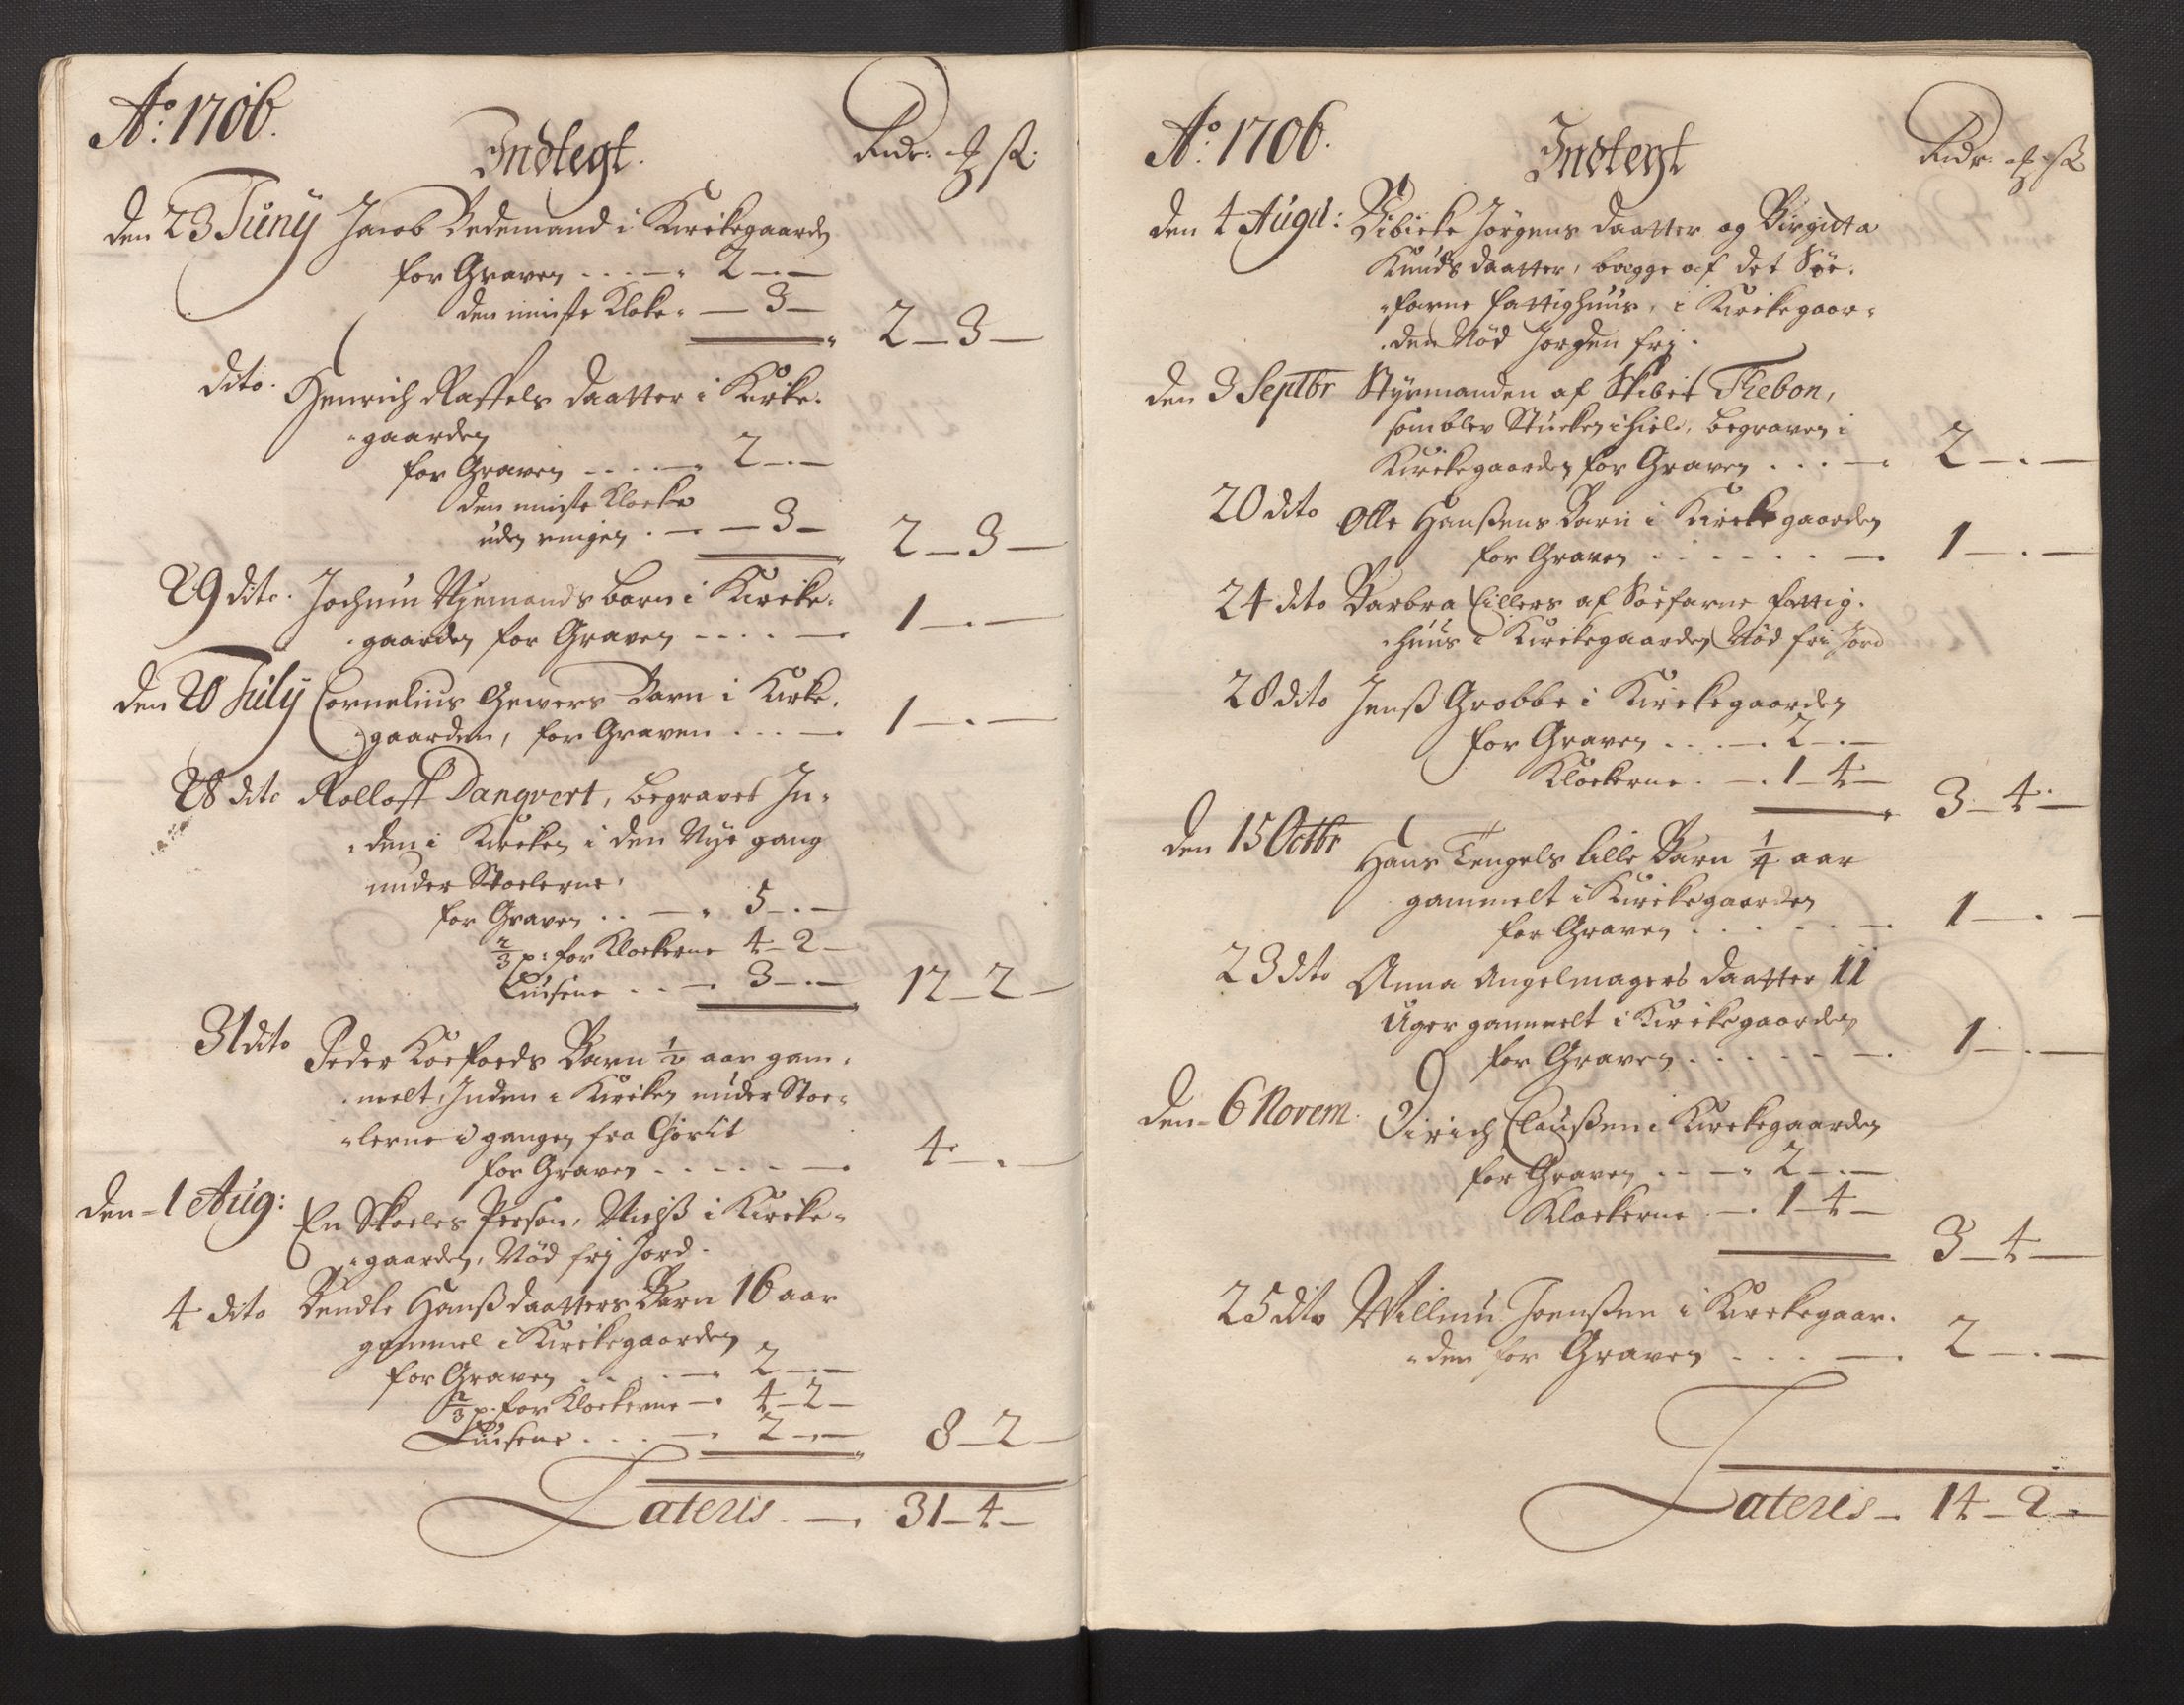 Ao: 1706.
Indtegt.
Rdr: ₰ sk:
den 23 Juny Jacob Bedemand i Kirckegaarden
for Graven . . . — 2 — . —
den minste Klocke — 3 —
2 — 3 —
dito. Henrich Raffels daatter i Kircke-
gaarden
for Graven . . . . — 2 — . —
den minste Klocke
uden ringen . — — 3 —
2 — 3 —
29 dito. Jochum Nyemands barn i Kircke-
gaarden for Graven . . . . — 1 — . —
den 20 July Cornelius Gewers Barn i Kircke-
gaarden, for Graven . . . — 1 — . —
28 dito Rolloff Danqvert, begravet In-
den i Kircken i den Nye gang
under Stoelerne.
for Graven . . — 5 — . —
2/3 p: for Klockerne 4 — 2 —
Luisene . . — 3 — . —
12 — 2 —
31 dito Peder Koefoeds Barn 1/2 aar gam-
melt, Inden i Kircken under Stoe-
lerne i gangen fra Choret
for Graven . . . . . — 4 — . —
den 1 Aug: En Skoeles Person, Nielß i Kircke-
gaarden, Nød frj Jord.
4 dito Bendte Hanßdaatters Barn 16 aar
gammel i Kirckegaarden
for Graven . . . . — 2 — . —
2/3 p. for Klockerne — 4 — 2 —
Luisene . . . — 2 — . —
8 — 2 —
Lateris . — 31 — 4 —
Ao: 1706.
Indtegt
Rdr. ₰ sk
den 4 Augu: Vibicke Jørgens daatter og Birgitta
Knuds daatter, bægge af det Søe-
farne fattighuus, i Kirckegaar-
den Nød Jorden frj.
den 3 Septbr Styrmanden af Skibet Thebon,
som blev Stucken ihiel, begraven i
Kirckegaarden for Graven . . . — 2 — . —
20 dito Olle Hanßens Barn i Kirckegaarden
for Graven . . . . . . — 1 — . —
24 dito Barbra Eillers af Søefarne fattig-
huus i Kirckegaarden Nød fri Jord
28 dito Jenß Grobbe i Kirckegaarden
for Graven . . . — 2 — . —
Klockerne . — 1 — 4 —
3 — 4 —
den 15 Octbr Hans Tengels lille Barn 1/4 aar
gammelt i Kirckegaarden
for Graven . . . . . — 1 — . —
23 dito Anna Angelmagers daatter 11
Uger gammelt i Kirckegaarden
for Graven . . . . . . — 1 — . —
den 6 Novem. Dirich Claußen i Kirckegaarden
for Graven . . — 2 — . —
Klockerne — . 1 — 4 —
3 — 4 —
25 dito Willum Joenßen i Kirckegaar-
den for Graven . . . — 2 — . —
Lateris — 14 — 2 —